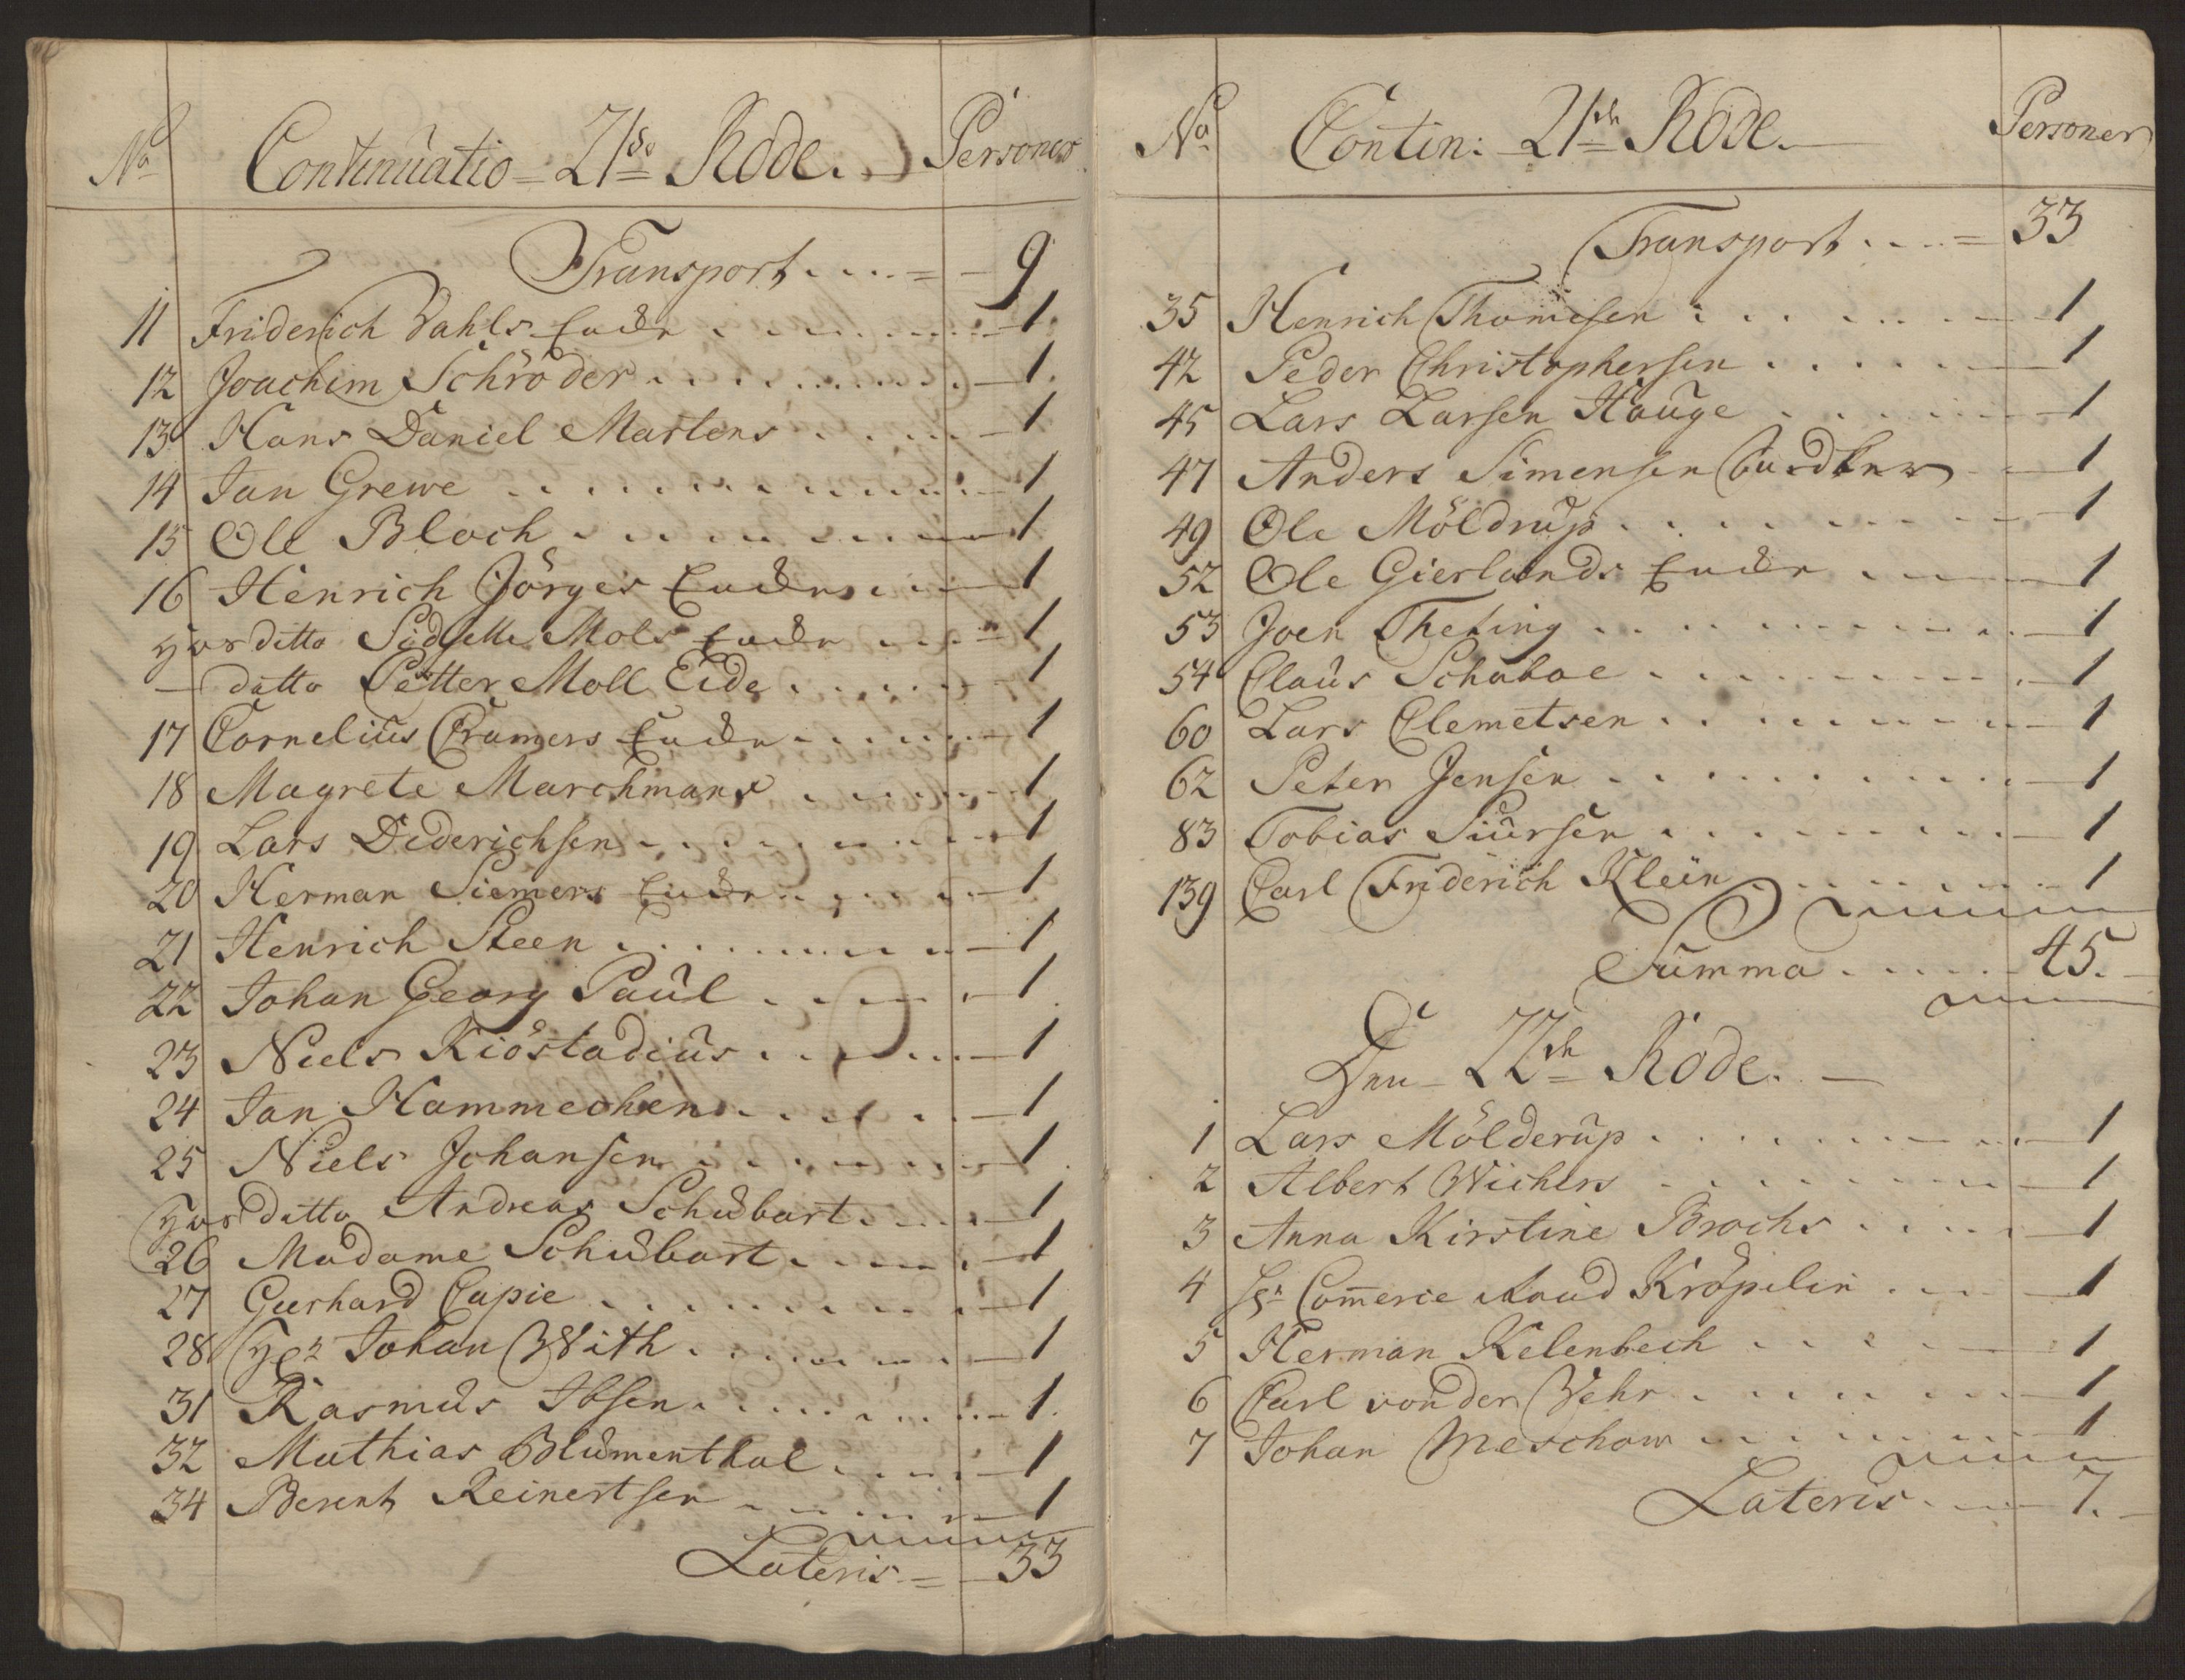 No Continuatio 21de Rode. Personer
Transport 9
11 Friderich Dahls Encke 1
12 Joachim Schröder 1
13 Hans Daniel Martens 1
14 Jan Grewe 1
15 Ole Bloch 1
16 Henrich Jörges Encke 1
hos ditto Mols Encke 1
ditto Petter Moll Eide 1
17 Cornelius Cramers Encke 1
18 Magrete Marchmans 1
19 Lars Dederichsen 1
20 Herman Siemers Encke 1
21 Henrich Steen 1
22 Johan Georg Paul 1
23 Niels Kiöstadius 1
24 Jan Hammechen 1
25 Niels Johansen 1
hos ditto Andreas Schubart 1
26 Madame Schubart 1
27 Gerhard Capie 1
28 Hr Johan With 1
31 Rasmus Ibsen 1
32 Mathias Blumenthal 1
34 Berent Reinertsen 1
Lateris 33
No Contin: 21de Rode. Personer
Transport 33
35 Henrich Thomesen 1
42 Peder Christophersen 1
45 Lars Larsen Hauge 1
47 Anders Simensen 1
49 Ole Möldrup 1
52 Ole Gierlands Encke 1
53 Joen Theting 1
54 Claus Schaboe 1
60 Lars Clemetsen 1
62 Peter Jensen 1
83 Tobias Siursen 1
139 Carl Friderich Klein 1
Summa 45.
Den 22de Rode.
1 Lars Mölderup 1
2 Albert Wichers 1
3 Anna Kirstine Brochs 1
4 Hr Com̅erce Raad Kröpelin 1
5 Herman Kelenbech 1
6 Carl von der Vehr 1
7 Johan Meschow 1
Lateris 7.